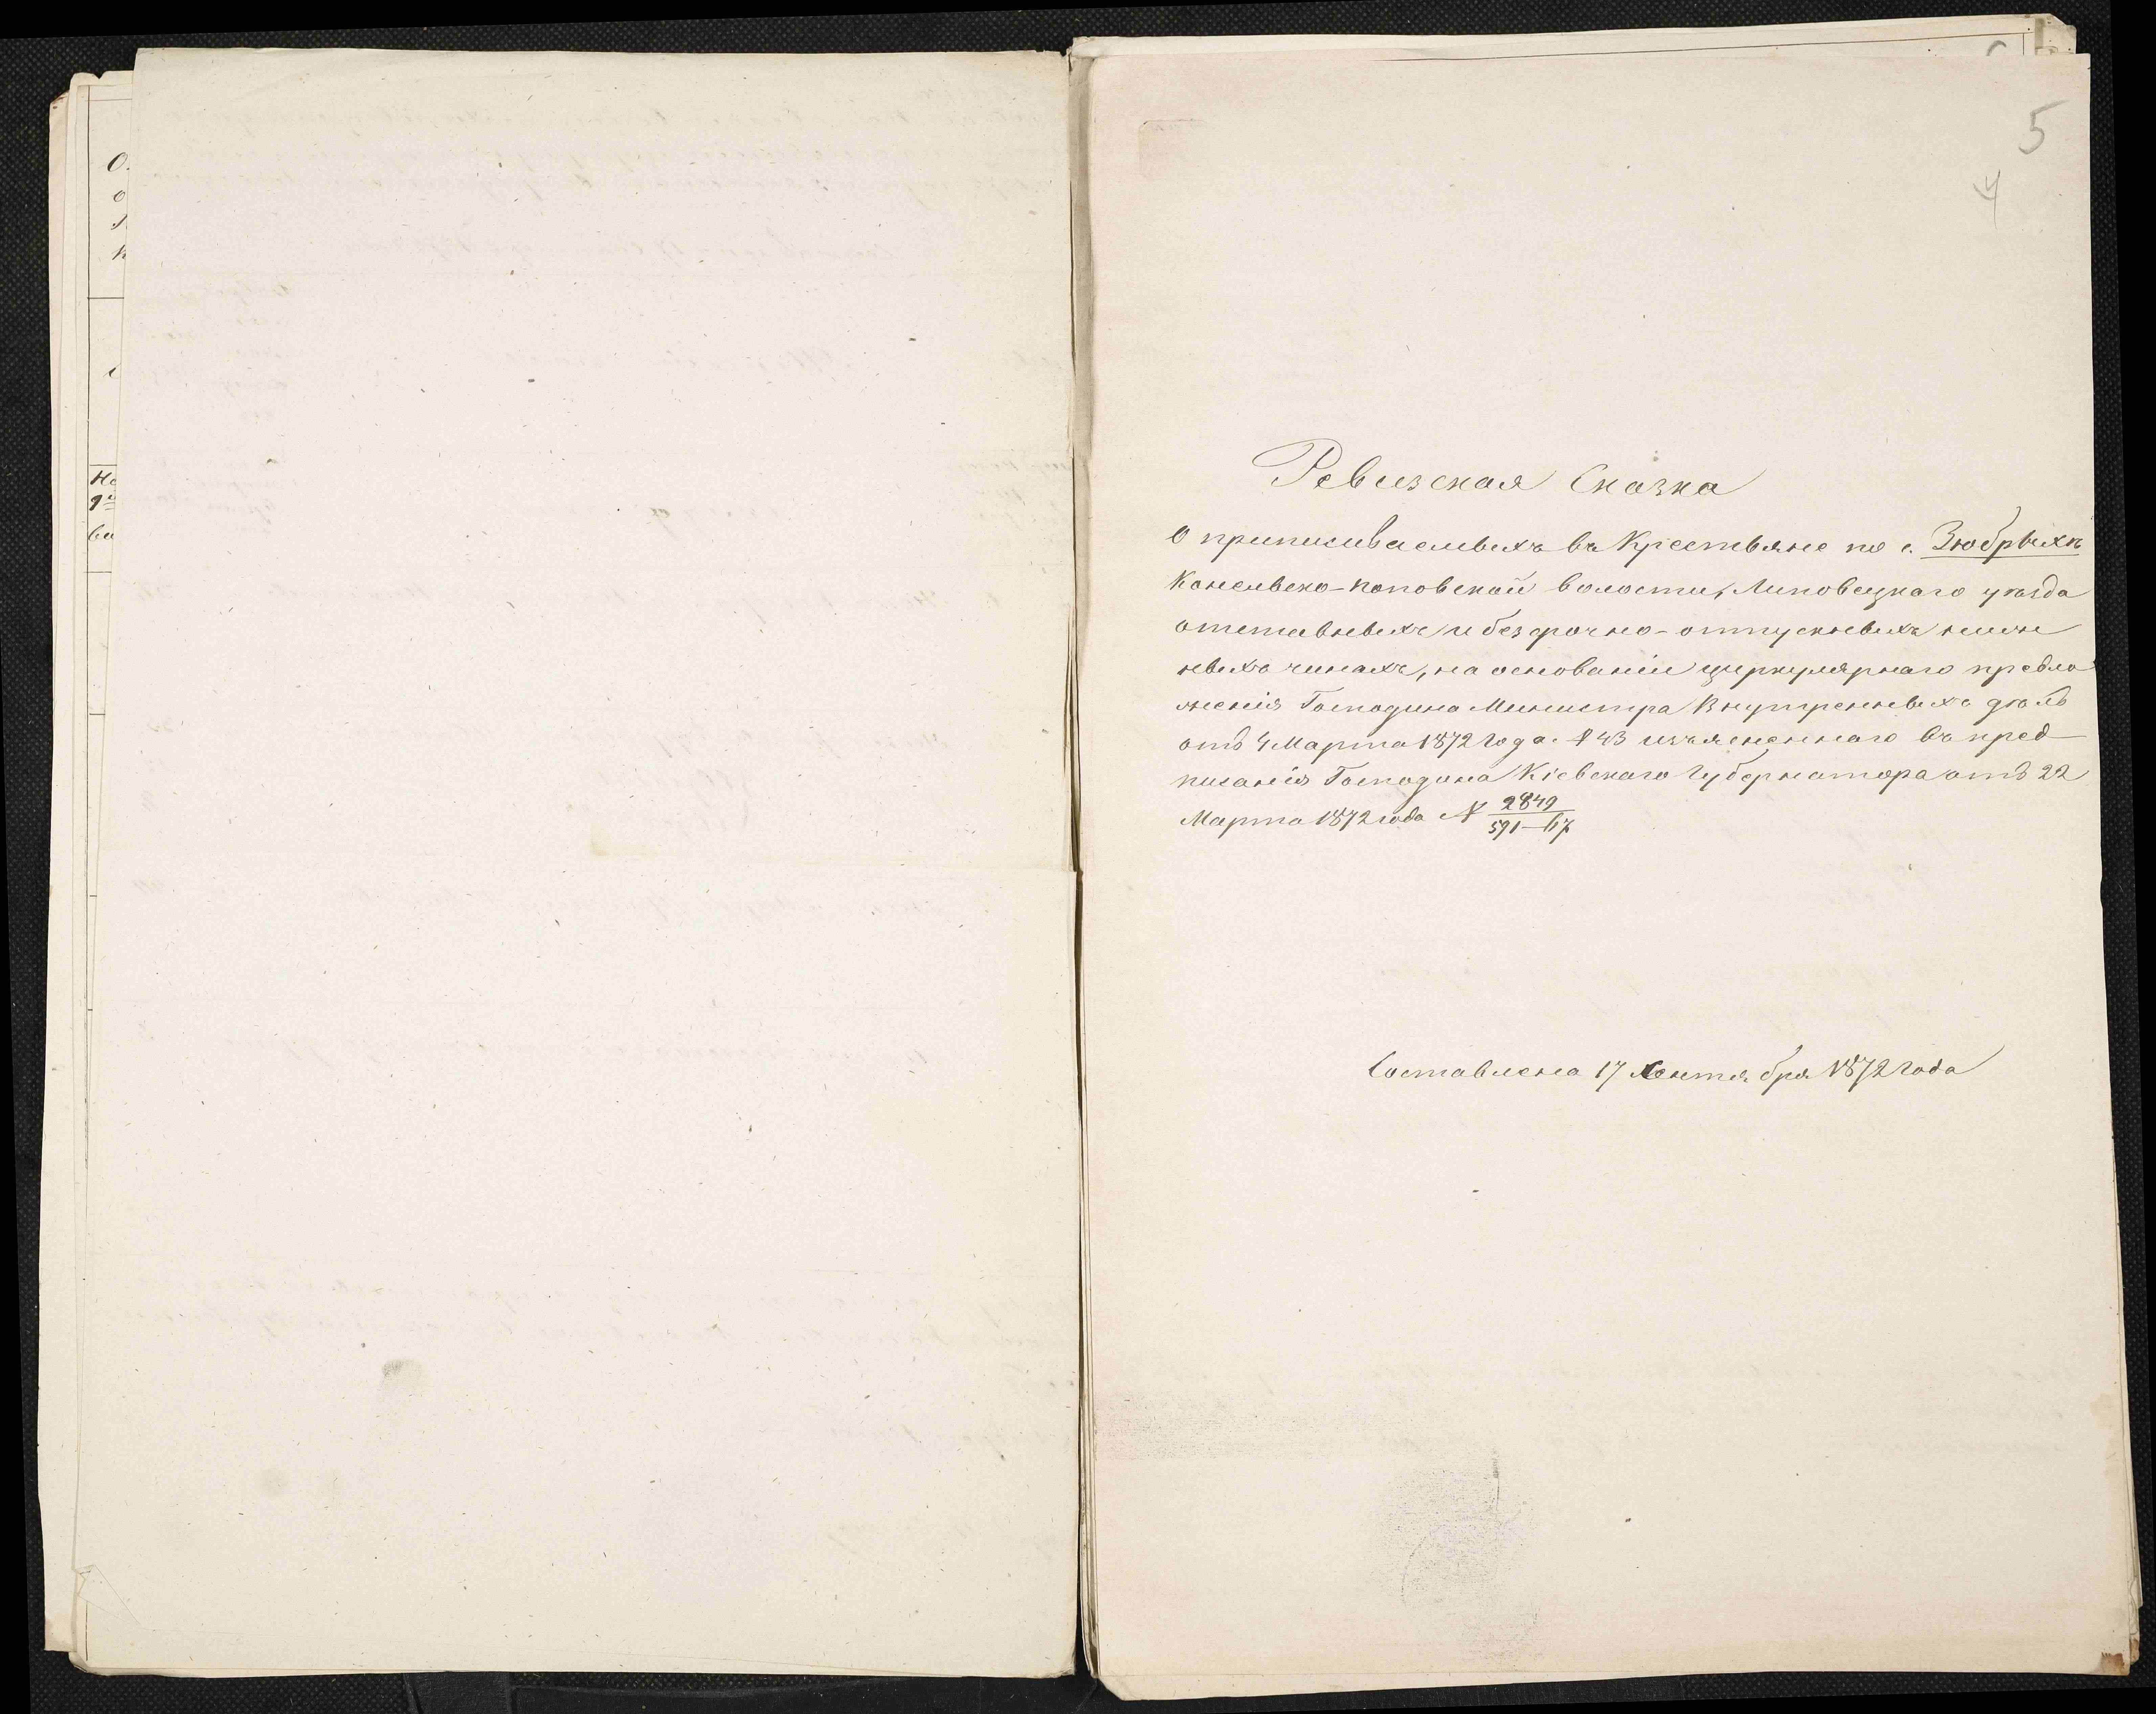 5
4
Ревизская Сказка
О приписываемыхъ въ Крестьяне по с. Зюбрыхъ
Конельско-поповской волости, Липовецкаго уѣзда
отставныхъ и безсрочно-отпускныхъ нижн
ныхъ чинахъ, на основаніи циркулярнаго предло
женія Господина Министра Внутреннихъ дѣлъ
отъ 4 Марта 1872 года № 43 изъясненнаго въ пред
писанія Господина Кіевскаго Губернатора отъ 22
Марта 1872 года № 2849/591-
Составлена 17 Сентября 1872 года